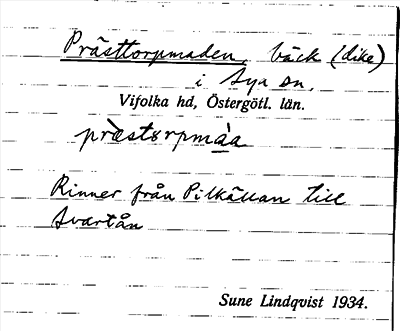 Prästtorpmaden, bäck (dike)
i Sya sn,
Vifolka hd, Östergötl. län.
præ̀stɔrpmàa
Rinner från Pilkällan till
Svartån
Sune Lindqvist 1934.